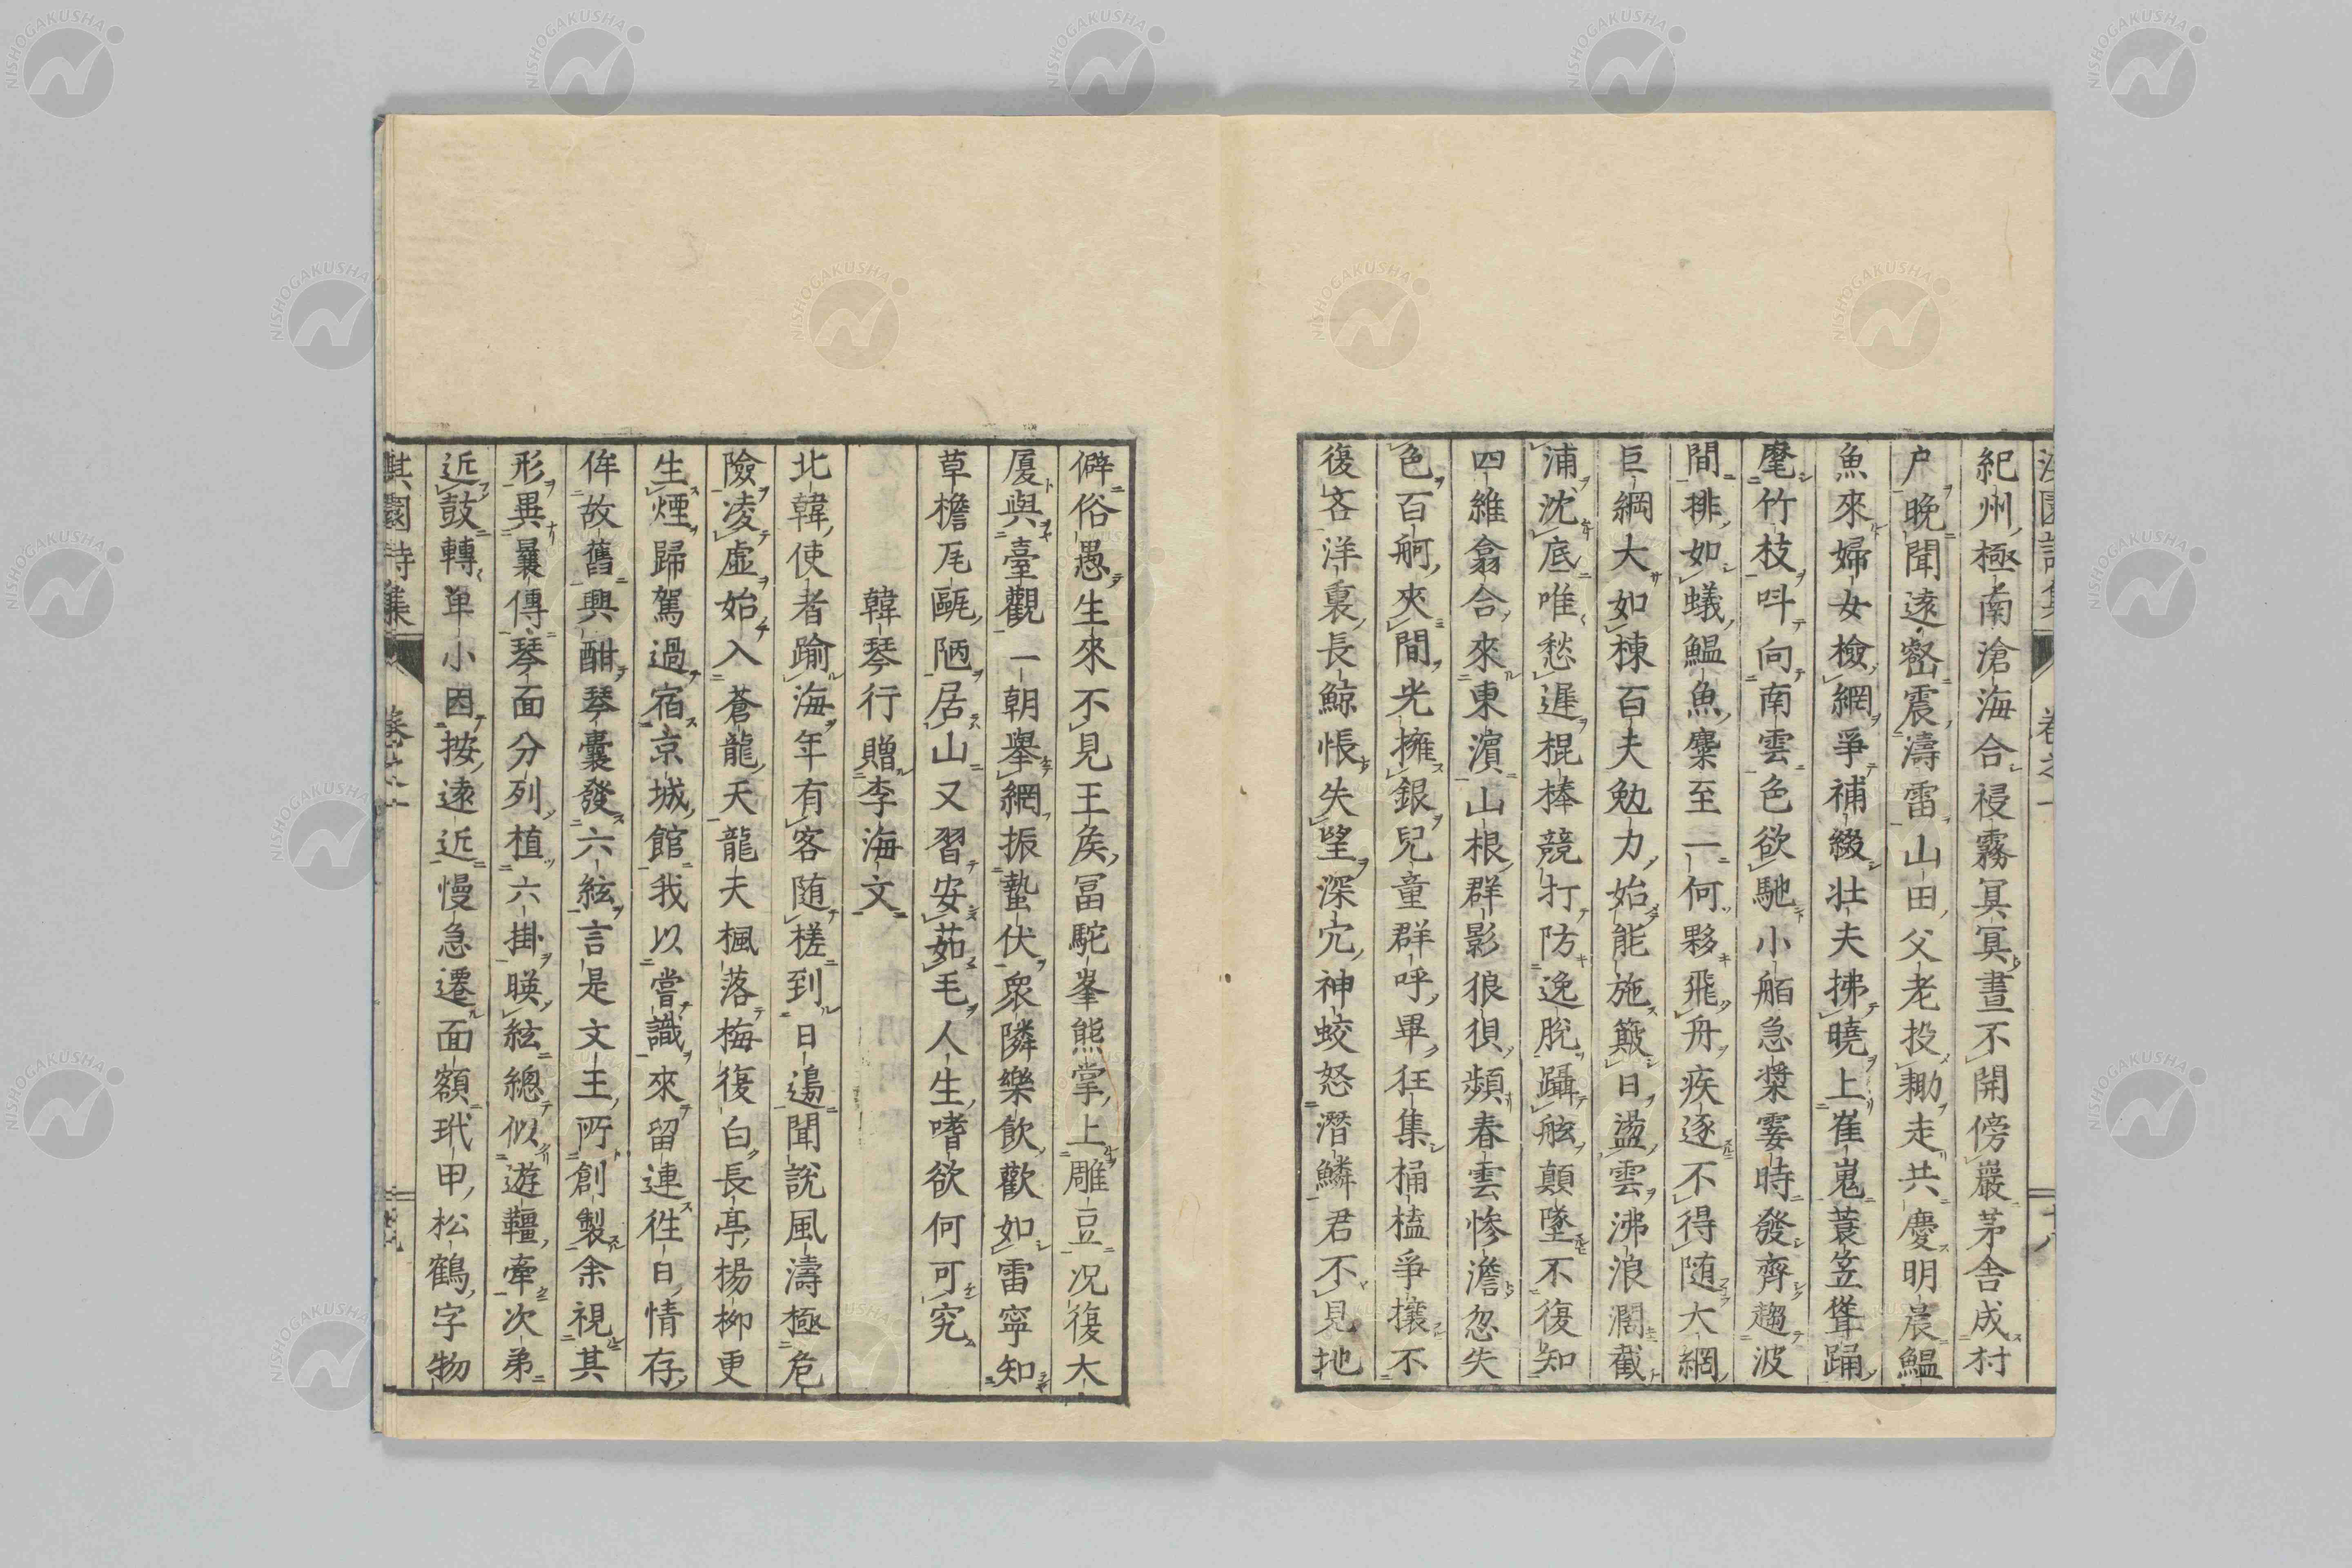 紀州極南滄海合祲霧冥冥晝不開傍巖茅舍成村
戶晩聞遠壑震濤雷山田父老投耡走共慶明晨鰛
魚來婦女檢網爭補綴壯夫拂曉上崔嵬蓑笠聳踊
麾竹枝呌向南雲色欲馳小舶急槳霎時發齊趨波
間排如蟻鰛魚麇至一何夥飛舟疾逐不得随大網
巨綱大如棟百夫勉力始能施簸日盪雲沸浪濶截
浦沈底唯愁遲棍棒競打防逸脫躡舷顛墜不復知
四維翕合來東濵山根群影狼狽頻舂雲惨澹忽失
色百舸夾間光擁銀兒童群呼畢狂集桶榼爭攘不
復吝洋裏長鯨悵失望深穴神蛟怒潛鱗君不見地
僻俗愚生來不見王矦冨駝峯熊掌上雕豆况復大
厦與臺觀一朝舉網振蟄伏衆隣樂飲歡如雷寧知
草檐瓦甌陋居山又習安茹毛人生嗜欲何可究
韓琴行贈李海文
北韓使者踰海年有客随槎到日邉聞說風濤極危
險凌虛始入蒼龍天龍夫楓落梅復白長亭楊柳更
生煙歸駕過宿京城館我以嘗識來留連徃日情存
侔故舊興酣琴囊發六絃言是文王所創製余視其
形異曩傳琴面分列植六掛暎絃總似遊韁牽次弟
近鼓轉单小因按遠近慢急遷面額玳甲松鶴字物
淇園詩集 卷之一